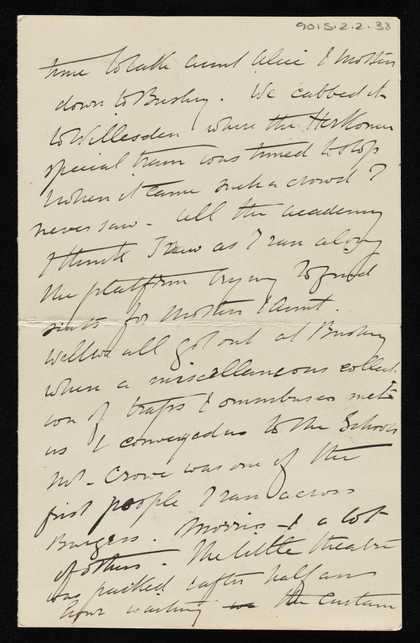 9015.2.2.38
time to take Aunt Alice & Mother
down to Bushey. We cabbed it
to Willesden where the Herkomer
special train was timed to stop
When it came such a crowd I
never saw - all the academy
I think I saw as I ran along
the platform trying to find
seats for Mother & Aunt.
Well we all got out at Bushey
when a miscellaneous collect
ion of traps & omnibuses met
us & conveyed us to the Schools
Mr. Crowe was one of the
first people I ran across
Burgess. Morris - & a lot
of others. The little theatre
was packed & after half an
hour waiting the curtain